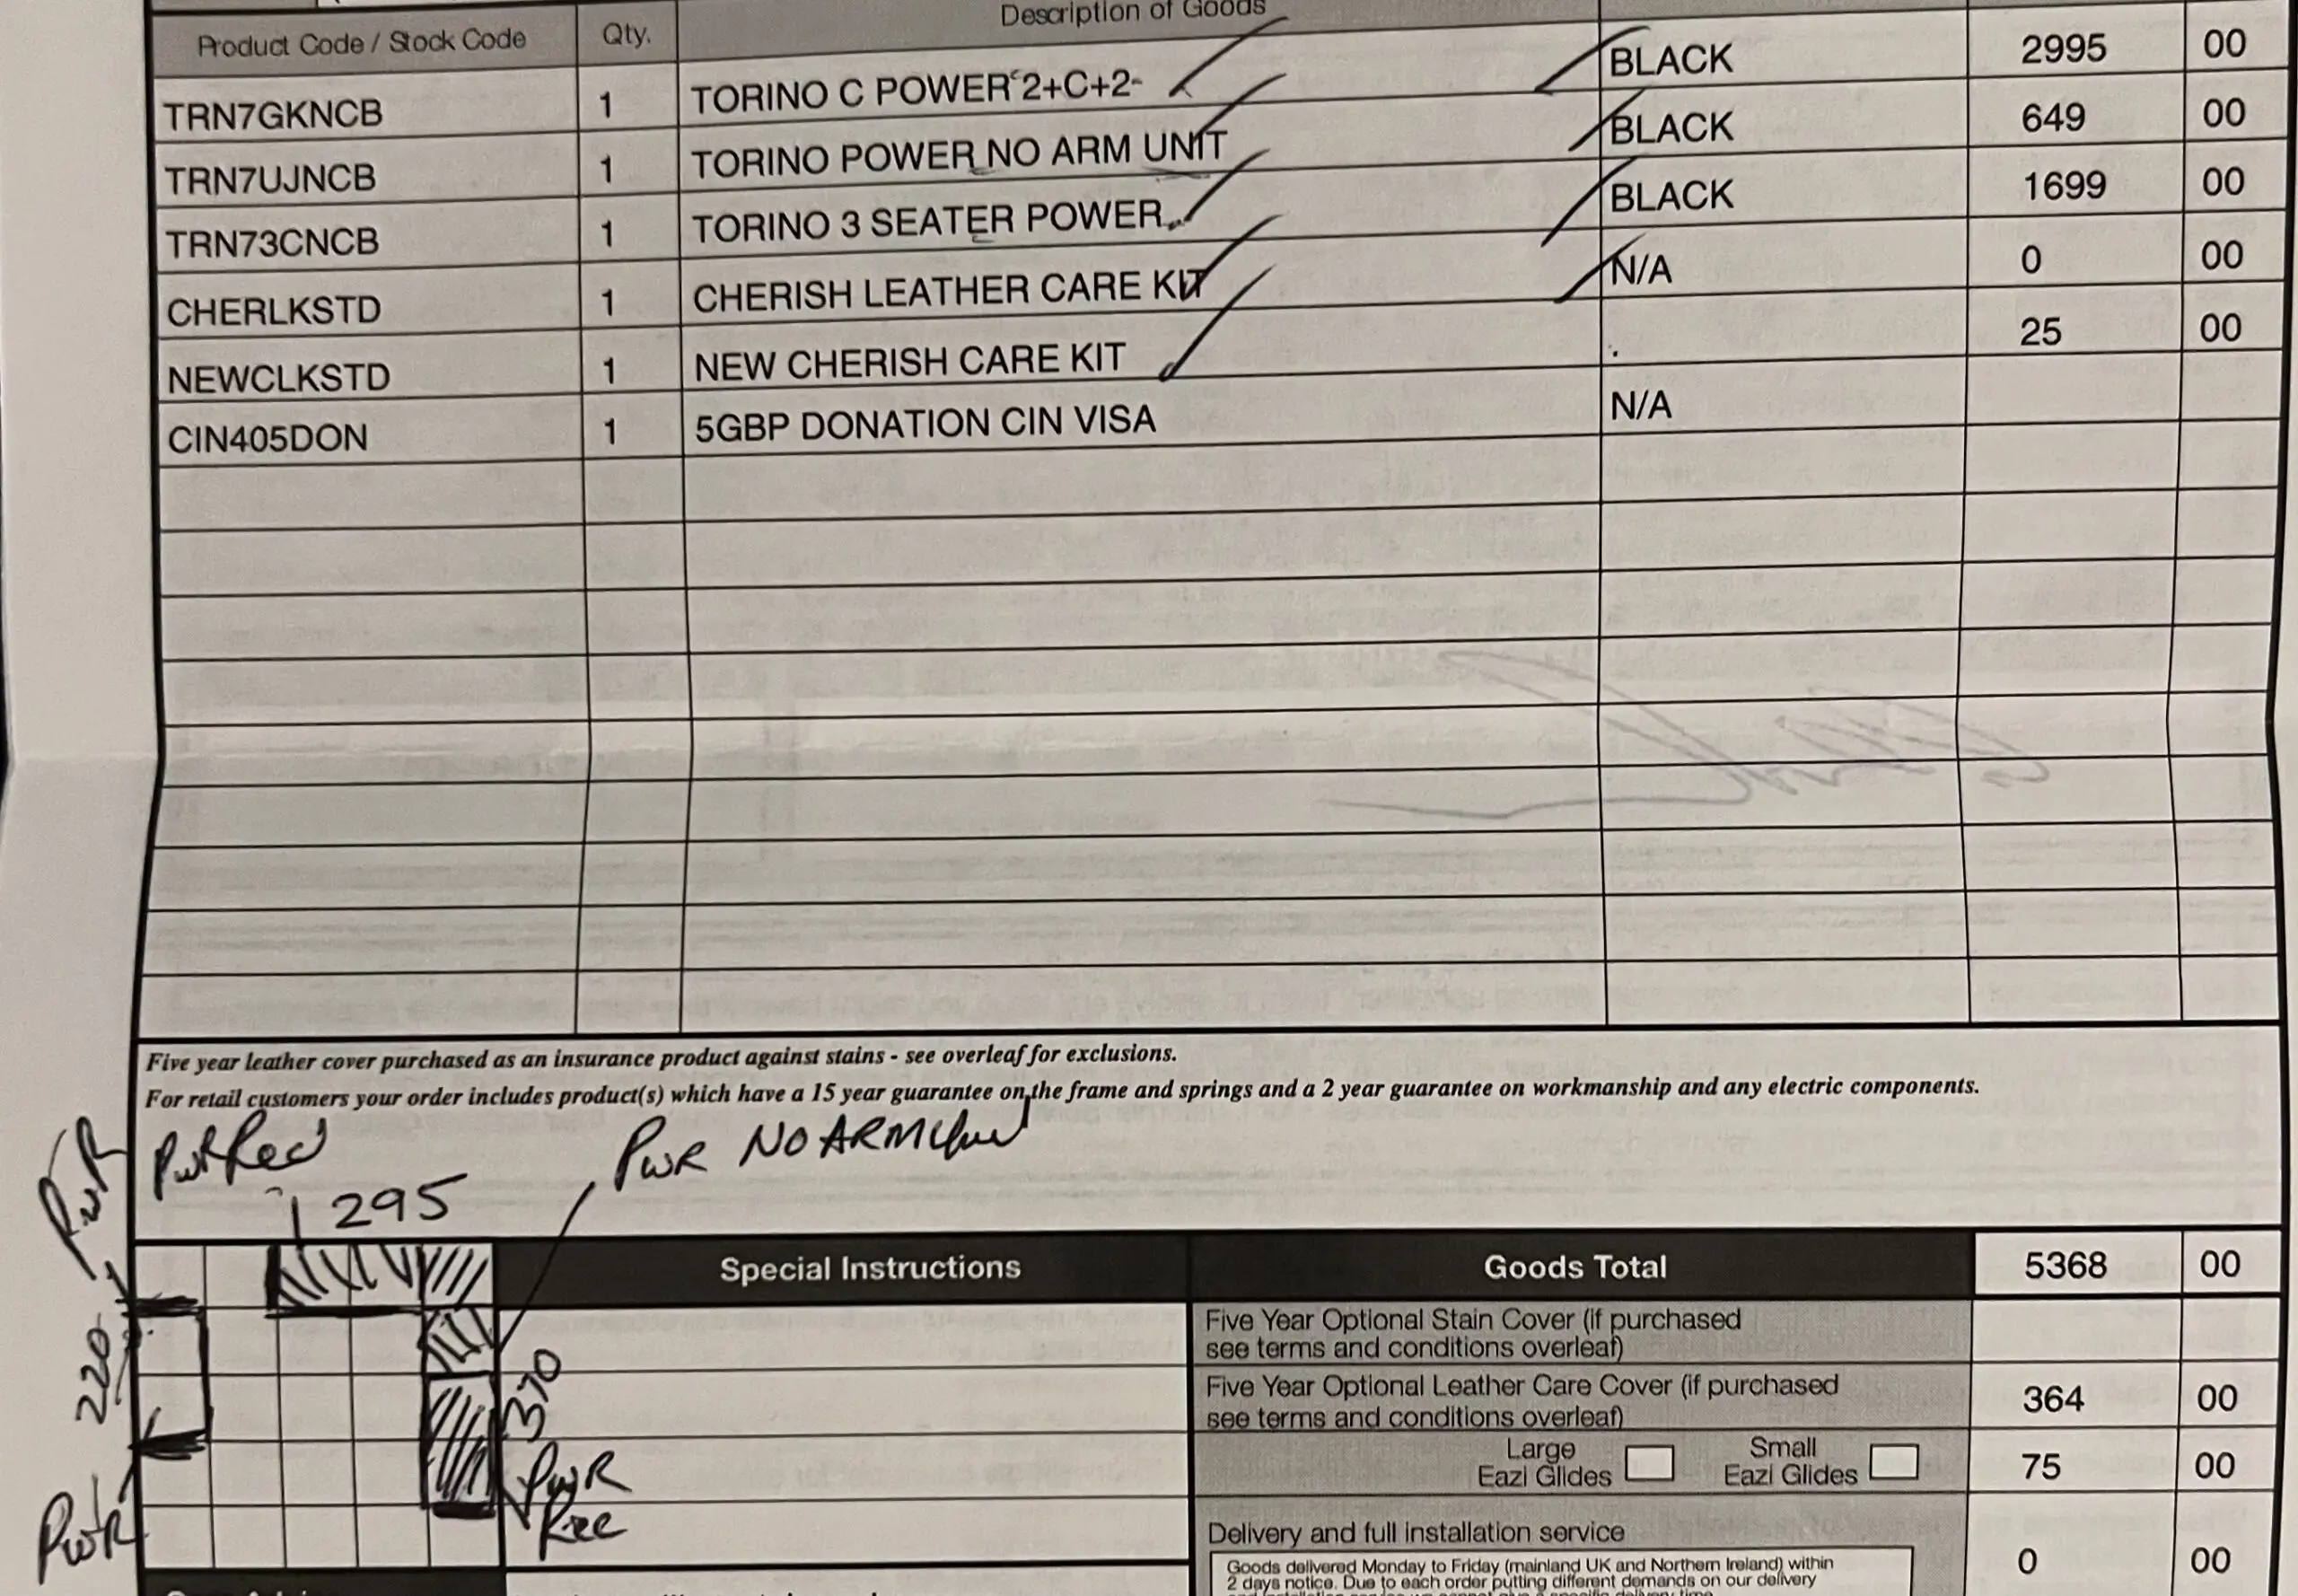 Product Code / Stock Code Qty. Description of Goods
TRN7GKNCB 1 TORINO C POWER 2+C+2- BLACK 2995 00
TRN7UJNCB 1 TORINO POWER NO ARM UNIT BLACK 649 00
TRN73CNCB 1 TORINO 3 SEATER POWER BLACK 1699 00
CHERLKSTD 1 CHERISH LEATHER CARE KIT N/A 0 00
NEWCLKSTD 1 NEW CHERISH CARE KIT . 25 00
CIN405DON 1 5GBP DONATION CIN VISA N/A
Five year leather cover purchased as an insurance product against stains - see overleaf for exclusions.
For retail customers your order includes product(s) which have a 15 year guarantee on the frame and springs and a 2 year guarantee on workmanship and any electric components.
PWR
PWR Rec
PWR NO ARM
295
Special Instructions
220
370
PWR
Rec
PWR
Goods Total 5368 00
Five Year Optional Stain Cover (if purchased
see terms and conditions overleaf)
Five Year Optional Leather Care Cover (if purchased
see terms and conditions overleaf) 364 00
Large
Eazi Glides
Small
Eazi Glides
75 00
Delivery and full installation service 0 00
Goods delivered Monday to Friday (mainland UK and Northern Ireland) within
2 days notice. Due to each order putting different demands on our delivery